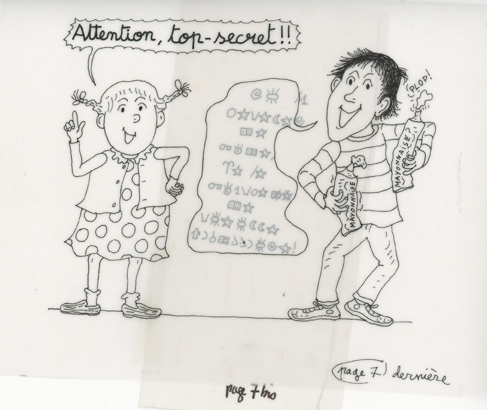 Attention, top-secret!!
PLOP!
MAYONNAISE
MAYONNAISE
page 7
dernière
page 7 bis